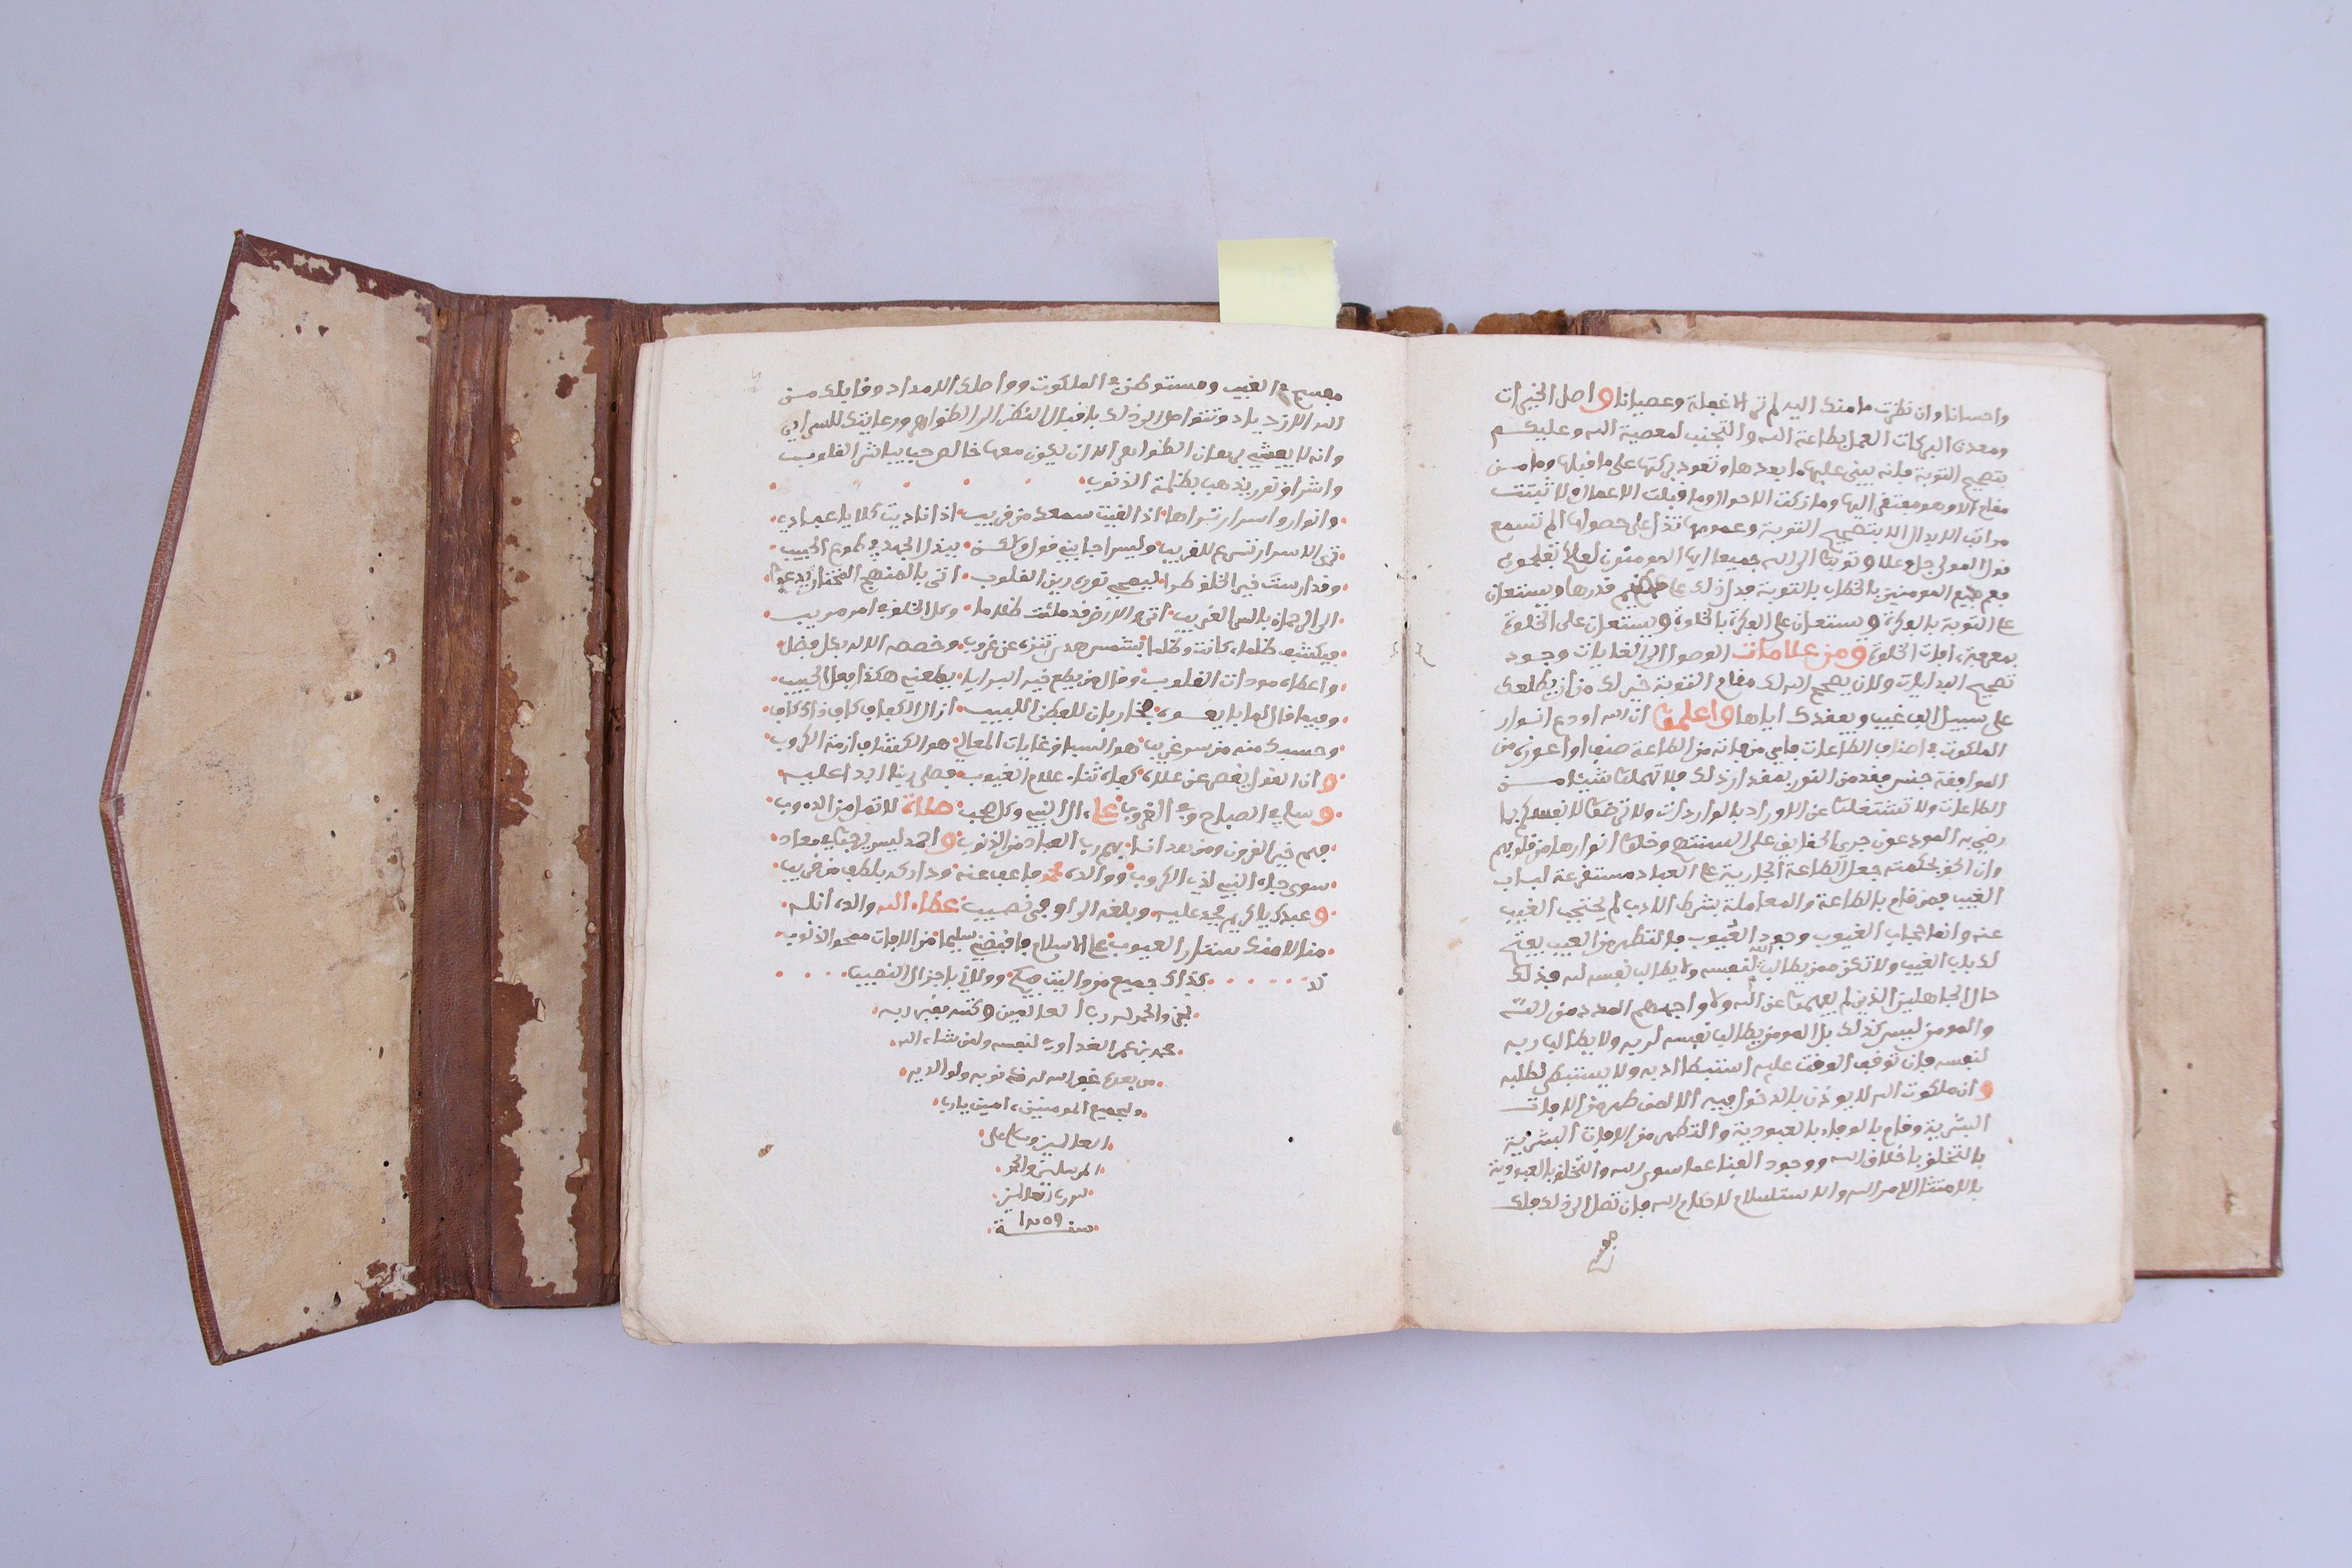 واحسانا وان نظرت ما منك اليه لم تر الا غفلة وعصيانا واصل الخيرات
ومعدن البركات العمل بطاعة الله والتجنب لمعصية الله وعليكم
بتصحيح التوبة فانه يبنى عليها ما بعدها وتعود بركتها على ما قبلها وما من
مقام الا وهو مفتقر اليها وما زكت الاحوال وما قبلت الاعمال ولا ثبتت
مراتب الابدال الا بتصحيح التوبة وعمومها تدل على حصولها الم تسمع
قول المولى جل وعلا وتوبوا الى الله جميعا ايه المومنون لعلكم تفلحون
فعم جميع المومنين بالخطاب بالتوبة فدل ذلك على قدرها ويستعان
على التوبة بالفكرة ويستعان على الفكرة بالخلوة ويستعان على الخلوة
بمعرفة افات الخلوة ومن علامات الوصول الى الغايات وجود
تصحيح البدايات ولان يصحح الله لك مقام التوبة خير لك من ان يطلعك
على سبيل الف غيب ويفقدك اياها واعلموا ان الله اودع انوار
الملكوت في اصناف الطاعات فاي من فاته من الطاعة صنف او اعوزه من
الموافقة جنس فقد من النور بمقدار ذلك فلا تهملوا شيئا من
الطاعات ولا تستغلوا عن الاوراد بالواردات ولا ترضوا لانفسكم بما
رضي به المدعون جرى الحقايق على السنتهم وخلو انوارها من قلوبهم
وان الحق بحكمته جعل الطاعة الجارية على العباد مستقرعة لباب
الغيب فمن قام بالطاعة والمعاملة بشرط الادب لم يحتجب الغيب
عنه وانما حجاب الغيوب وجود العيوب فالتطهر من العيب يفتح
لك باب الغيب ولا تكن ممن يطالب الله لنفسه ولا يطالب نفسه لله فذلك
حال الجاهلين الذين لم يفهموا عن الله ولا واجههم المدد من الله
والمومن ليس كذلك بل المومن يطالب نفسه لربه ولا يطالب ربه
لنفسه فان توقف الوقت عليه استبطا ادبه ولا يستبطي مطلبه
وان ملكوت الله لا يوذن بالدخول فيه الا لمن طهر من الافات
البشرية وقام بالوفاء بالعبودية والتطهر من الافات البشرية
بالتخلق باخلاق الله ووجود الفنا عما سوى الله والتخلق بالعبودية
بالامتثال لامر الله والاستسلام لاحكام الله فان تصل الى ذلك فلك
مفسح في الغيب ومستوطن في الملكوت وواصلك الامداد وقابلك من
الله الازدياد وتتواصل الى ذلك باقبال النظر الى الظواهر ورعايتك للسراير
وانه لا يفتح بمعان الظواهر الا ان يكون معها خالص حب يباشر القلوب
واشراق نور يذهب بظلمة الذنوب
وانوار واسرار تراها اذا لفيت سمعك من قريب اذا ناديت كلا يا عبادي
ترى الاسرار تسرع للقريب وليس اجابتي قول ولكن ببذل الجهد في طوع الحبيب
وقد ارسلت خير الخلق طرا ليمحو نوره رين القلوب اتى بالمنهج المختار يدعوا
الى الرحمان بالسر الغريب اتى والارض قد ملئت ظلاما وكل الخلق في امر مريب
فيكشف ظلماء كانت وظلما بشمس هدى تنزه عن غروب وخصصه الاله بكل فضل
واعطاه مودات القلوب وقال من يطع خير البرايا يطعني هكذا فعل الحبيب
وحسبك منه من سر غريب هو السباق غايات المعالي هو الكشاف ازمة الكروب
وان القول يقصر عن علاه كفاه ثناء علام الغيوب فصلى ربنا ابدا عليه
وسلم في الصباح وفي الغروب على ال النبي وكل صحب صلاة لا تمل من الدءوب
هم خير القرون ومن بعد اتى بهم رب العباد من الذنوب واحمد ليس يرجوا في معاد
سوى جاه النبي لذي الكروب ووالده محمد فاعف عنه وداركه بلطف من قريب
وعبدك يا كريم فجد عليه وبلغه الى اوفى نصيب عطاء الله والده انله
منا الا منك ستار العيوب على الاسلام فاقبضني سليما من الافات ممحو الذنوب
كذاك جميع من والى صحبي ووالي اجزال النصيب
نجز والحمد لله رب العالمين وكتبه فقير ربه
محمد بن عمر الغداوي لنفسه ولمن شاء الله
من بعده غفر الله له ذنوبه ولوالديه
ولجميع المومنين امين يا رب
العالمين وسلام على
المرسلين والحمد
لله رب العالمين
سنة ١٠٥٩